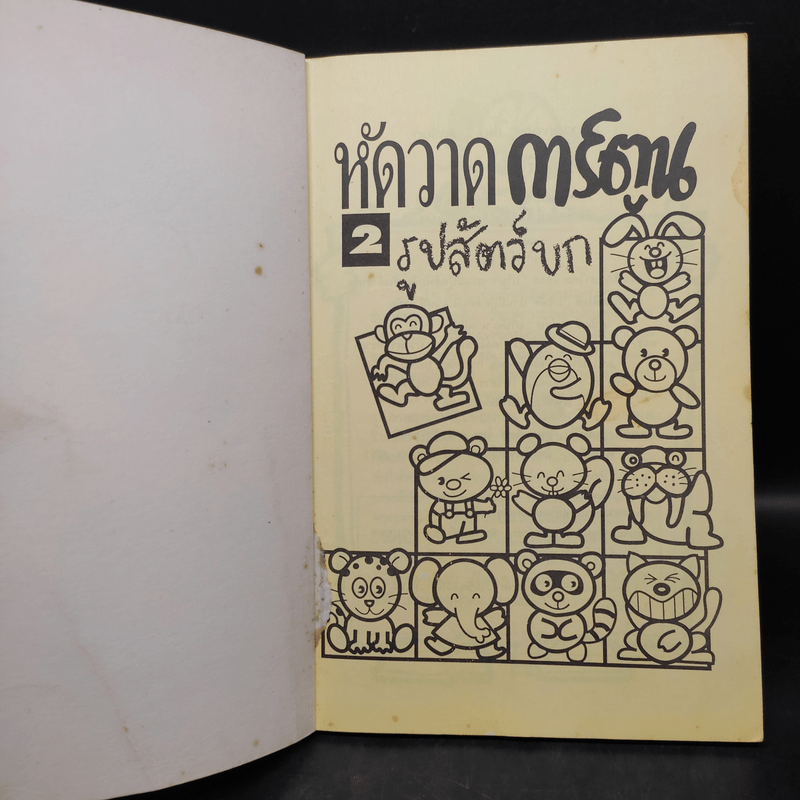 หัดวาดการ์ตูน
2 รูปสัตว์บก